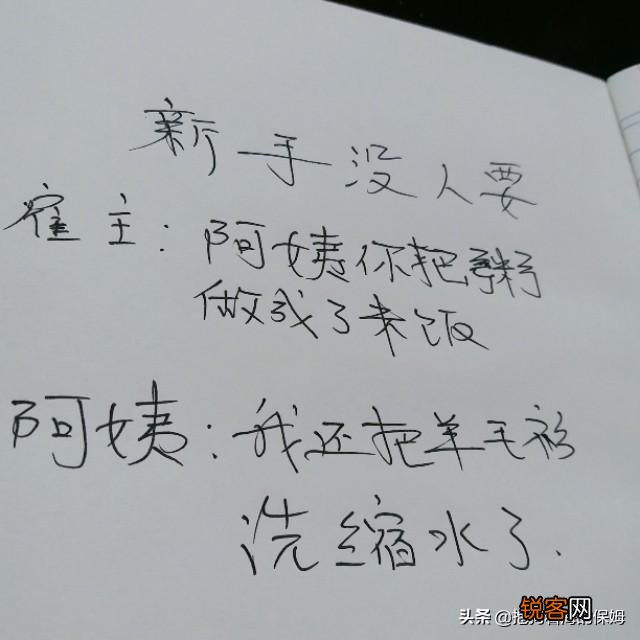 新手没人要
雇主：阿姨你把粥
做成了米饭
阿姨：我还把羊毛衫
洗缩水了.
锐客网
头条 @
保姆